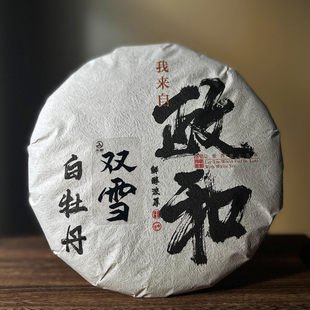 我来自
政和
双雪
白牡丹